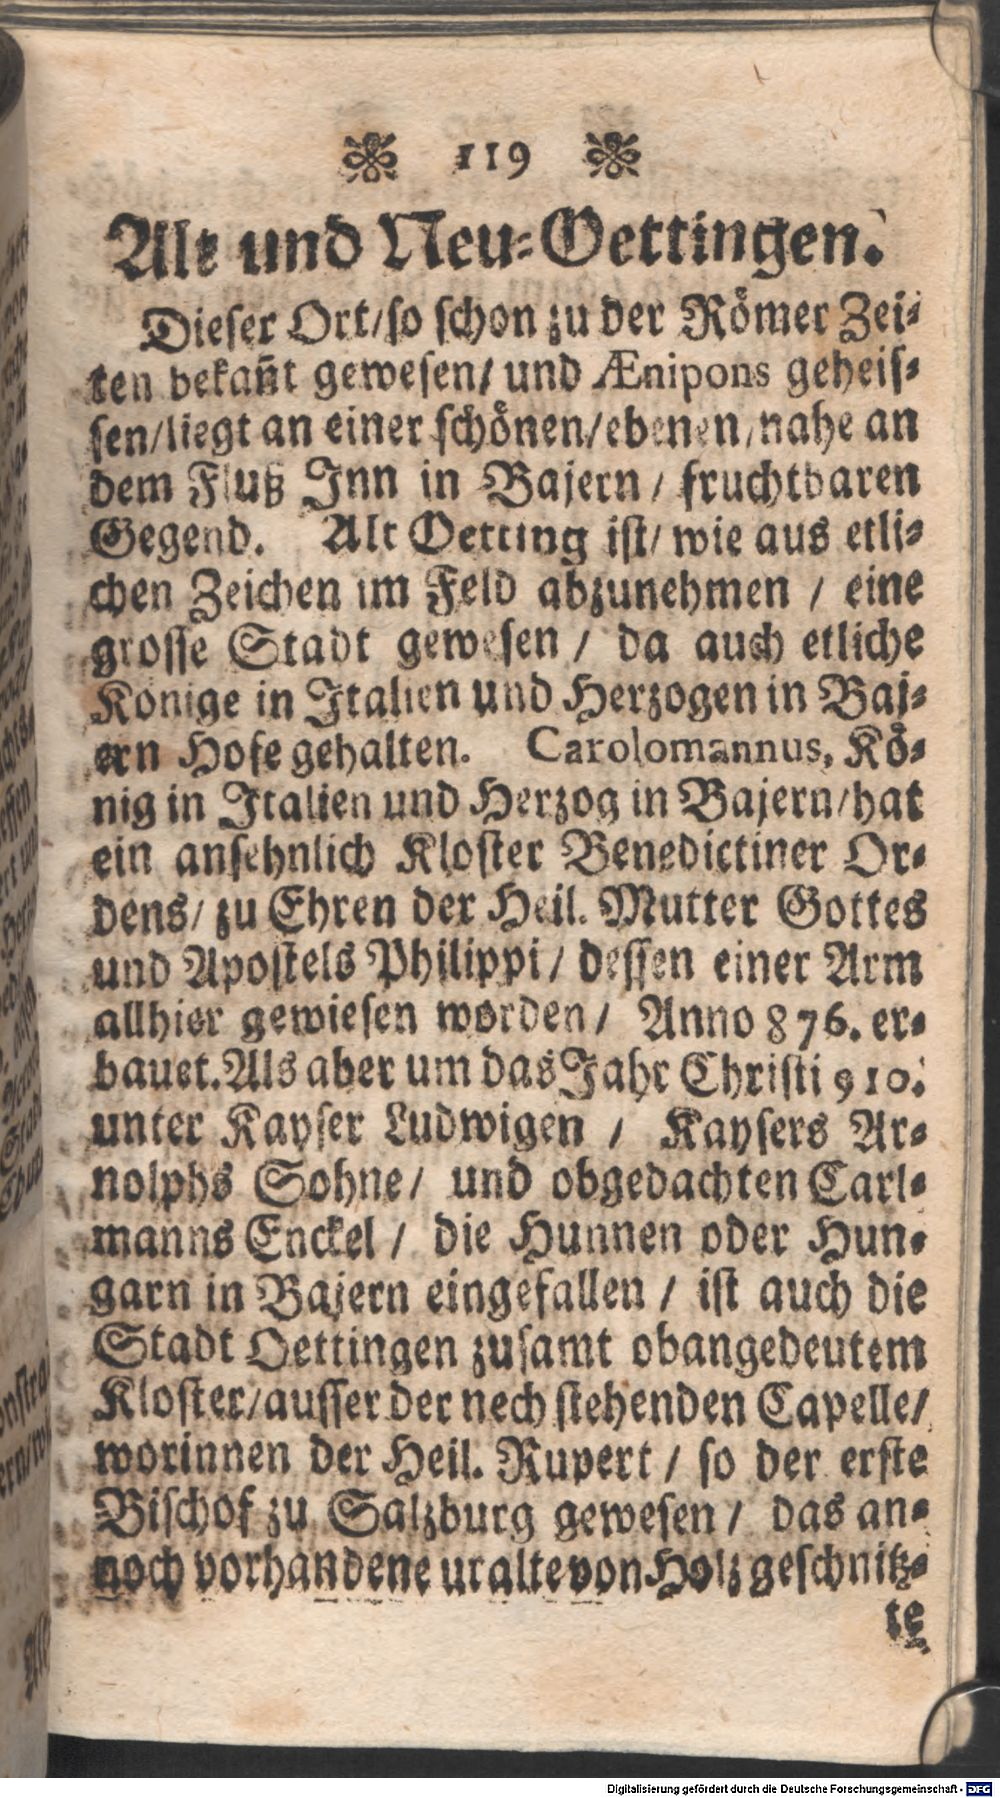 119
Alt und Neu-Oettingen.
Dieser Ort/so schon zu der Römer Zei-
ten bekañt gewesen/ und Ænipons geheis-
sen/liegt an einer schönen/ebenen/nahe an
dem Fluß Inn in Bajern / fruchtbaren
Gegend. Alt Oetting ist/ wie aus etli-
chen Zeichen im Feld abzunehmen / eine
grosse Stadt gewesen / da auch etliche
Könige in Italien und Herzogen in Baj-
ern Hofe gehalten. Carolomannus, Kö-
nig in Italien und Herzog in Bajern/hat
ein ansehnlich Kloster Benedictiner Or-
dens/ zu Ehren der Heil. Mutter Gottes
und Apostels Philippi / dessen einer Arm
allhier gewiesen worden / Anno 876. er-
bauet. Als aber um das Jahr Christi 910.
unter Kayser Ludwigen / Kaysers Ar-
nolphs Sohne / und obgedachten Carl-
manns Enckel / die Hunnen oder Hun-
garn in Bajern eingefallen / ist auch die
Stadt Oettingen zusamt obangedeutem
Kloster/ausser der nech stehenden Capelle/
worinnen der Heil. Rupert / so der erste
Bischof zu Salzburg gewesen / das an-
noch vorhandene uralte von Holz geschnitz-
te
Digitalisierung gefördert durch die Deutsche Forschungsgemeinschaft - DFG